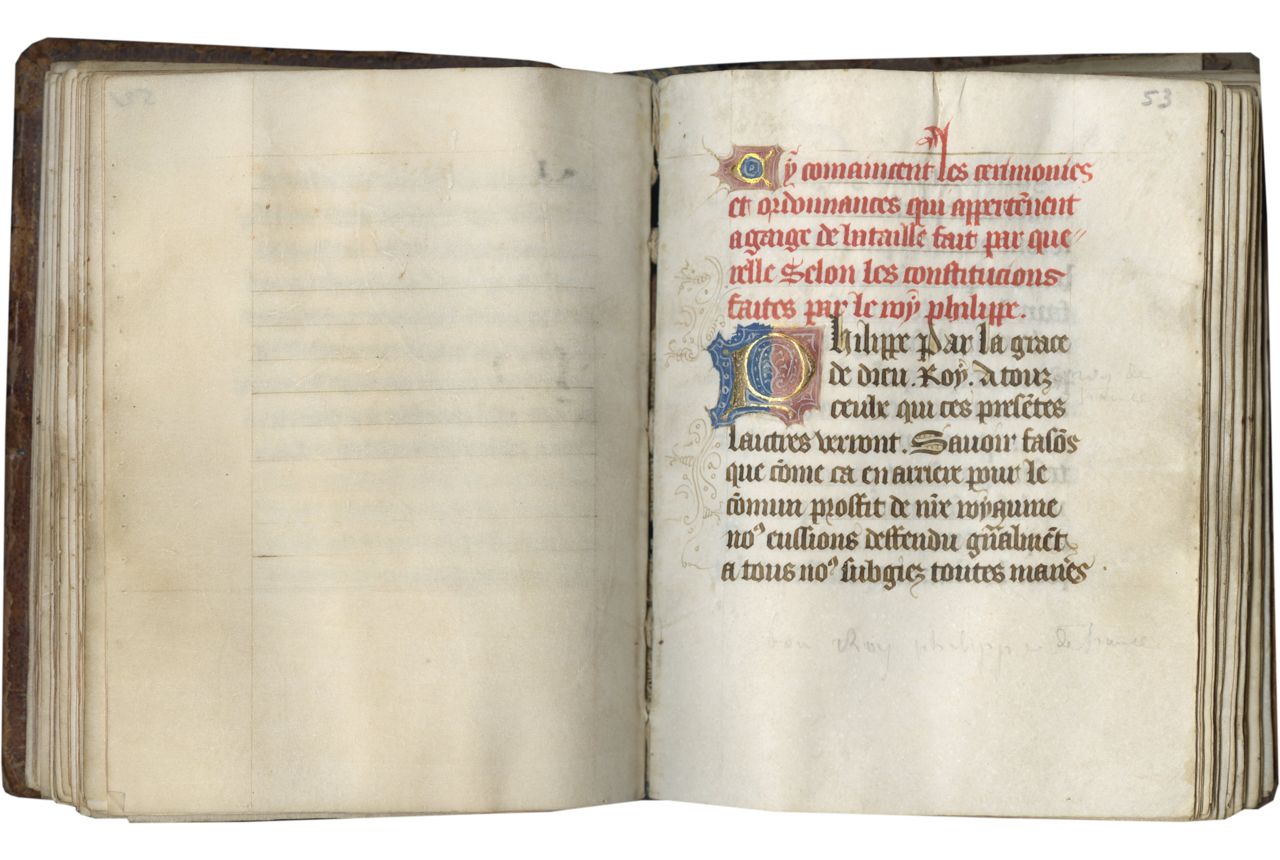 53
Cy comaincent les cerimonies
et ordonnances qui appertēnent
a gaige de bataille fait par que〃
relle Selon les constitucions
faites par le roy philippe.
Philippe Par la grace
de dieu. Roy. A touz
ceulx qui ces presētes
laictres verront. Sauoir fasōs
que cōme ca en arriere pour le
cōmun proffit de nr̄e royaume
noꝰ eussions deffendu gn̄almēt
a tous noꝰ subgiez toutes manēs
Roy philippe de france